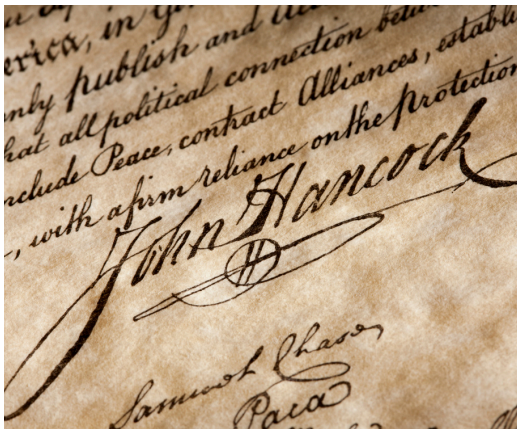 erica, in G
only publish and
hat all political connection betw
nclude Peace, contract Alliances, establi
, with a firm reliance on the protection
John Hancock
Samuel Chase
Paca